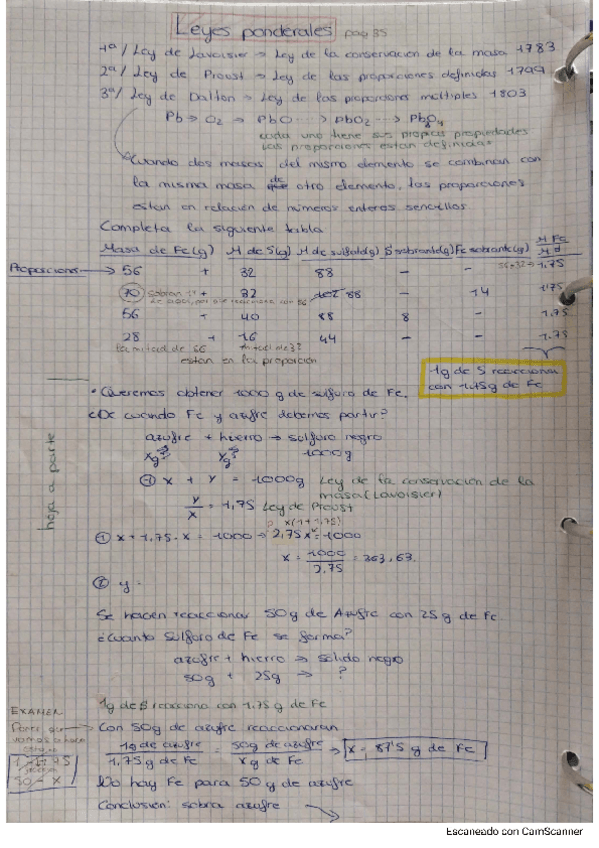 Leyes ponderales pag 35
1ª/ Ley de Lavoisier → Ley de la conservación de la masa 1783
2ª/ Ley de Proust → Ley de las proporciones definidas 1799
3ª/ Ley de Dalton → Ley de las proporciones múltiples 1803
Pb → O2 → PbO → PbO2 → Pb3O4
cada uno tiene sus propias propiedades
las proporciones están definidas
Cuando dos masas del mismo elemento se combinan con
la misma masa de otro elemento, las proporciones
están en relación de números enteros sencillos
Completa la siguiente tabla
Masa de Fe(g) M de S(g) M de sulfuro(g) S sobrante(g) Fe sobrante(g) M Fe
Proporciones → 56 + 32 88 - - 1,75
70 + 32 88 - 14 1'75
56 + 40 88 8 - 1.75
28 + 16 44 - - 1.75
la mitad de 56 mitad de 32
están en la proporción
1g de S reacciona
con 1,75g de Fe
• Queremos obtener 1000 g de sulfuro de Fe.
¿De cuándo Fe y azufre debemos partir?
hoja a parte
azufre + hierro → sulfuro negro
xg? yg? 1000g
① x + y = 1000g Ley de la conservación de la
masa (Lavoisier)
y/x = 1,75 Ley de Proust
x(1+1,75)
① x + 1,75 · x = 1000 → 2,75x = 1000
x = 1000/2,75 = 363,63.
② y =
Se hacen reaccionar 50g de Azufre con 25g de Fe
¿Cuánto Sulfuro de Fe se forma?
azufre + hierro → sólido negro
50g + 25g → ?
1g de S reacciona con 1.75 g de Fe
EXAMEN
Con 50g de azufre reaccionaran
1g de azufre/1,75g de Fe = 50g de azufre/xg de Fe → x = 87'5 g de Fe
1 → 1'75
50 - x
No hay Fe para 50g de azufre
Conclusión: sobra azufre
Escaneado con CamScanner